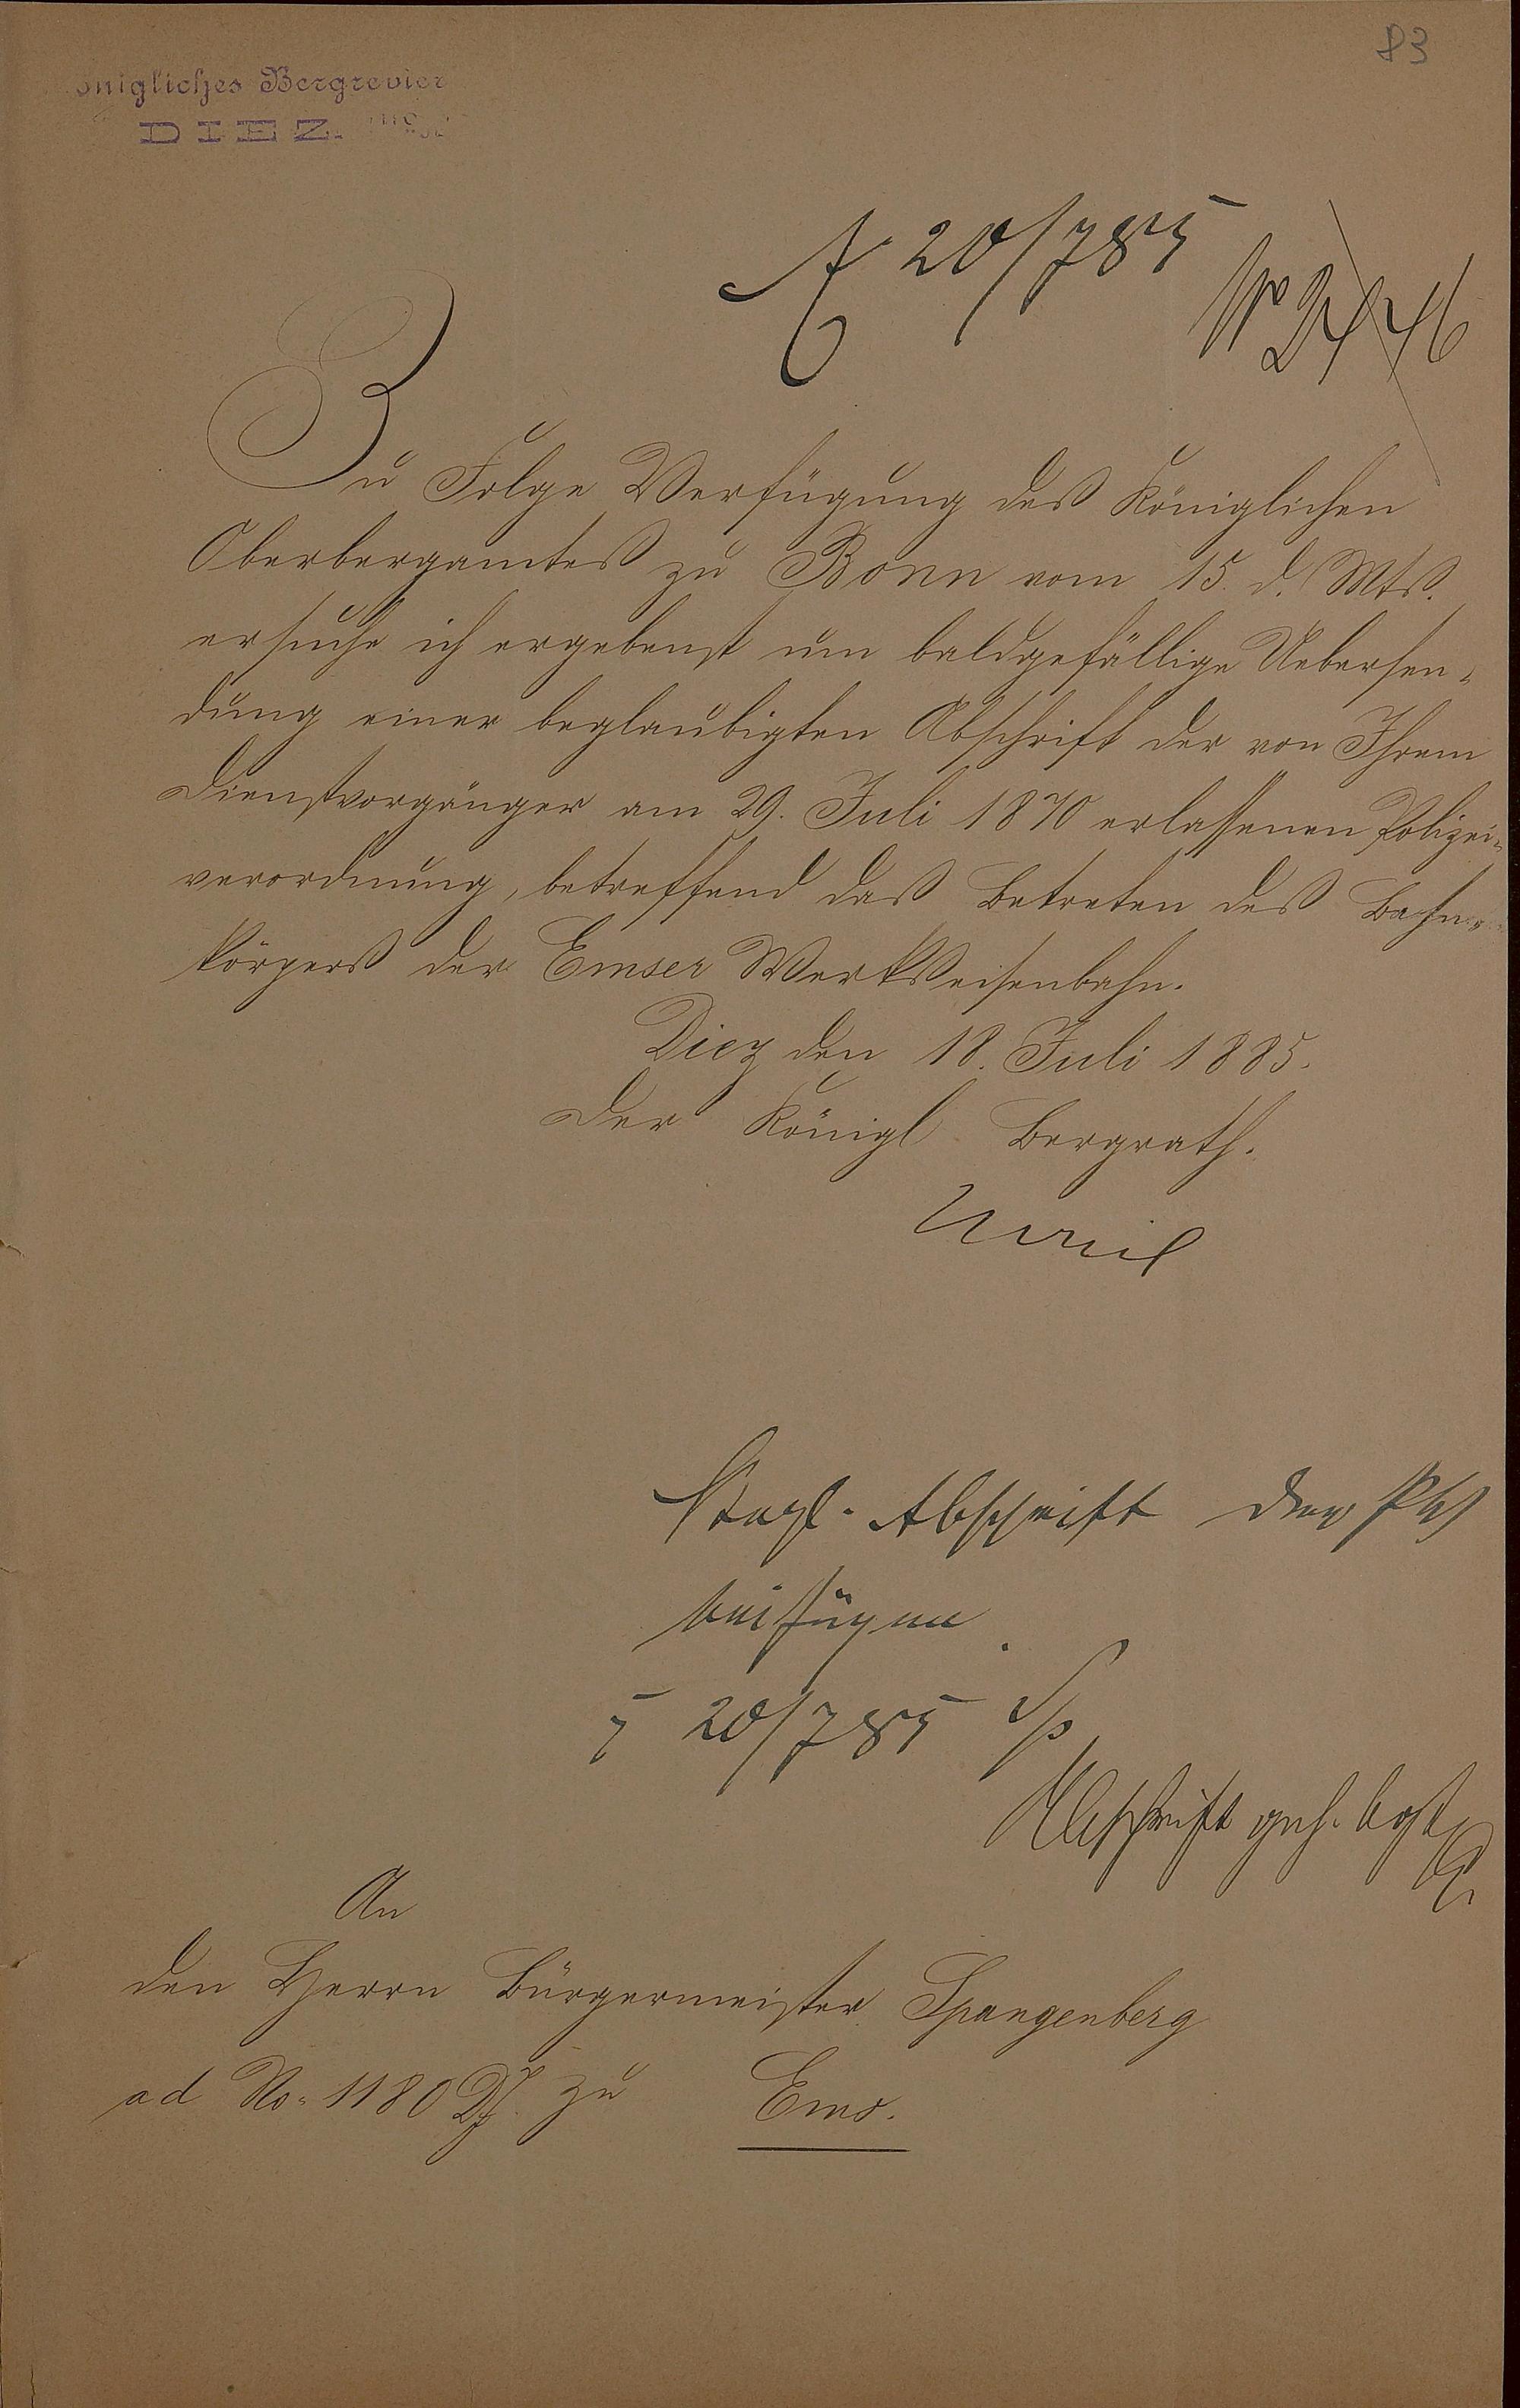 83
önigliches Bergrevier
DIEZ.
20/7 85
No 2446
Zu Folge Verfügung des Königlichen
Oberbergamtes zu Bonn vom 15. d. Mts.
ersuche ich ergebenst um baldgefällige Uebersen-
dung einer beglaubigten Abschrift der von Ihrem
Dienstvorgänger am 29. Juli 1870 erlassenen Polizei-
verordnung, betreffend das Betreten des Bahn-
körpers der Emser Werkseisenbahn.
Diez den 18. Juli 1885.
Der Königl. Bergrath.
Abschrift der PV
beifügen.
20/7 85
Abschrift
An
den Herrn Bürgermeister Spangenberg
ad No. 1180 zu Ems.